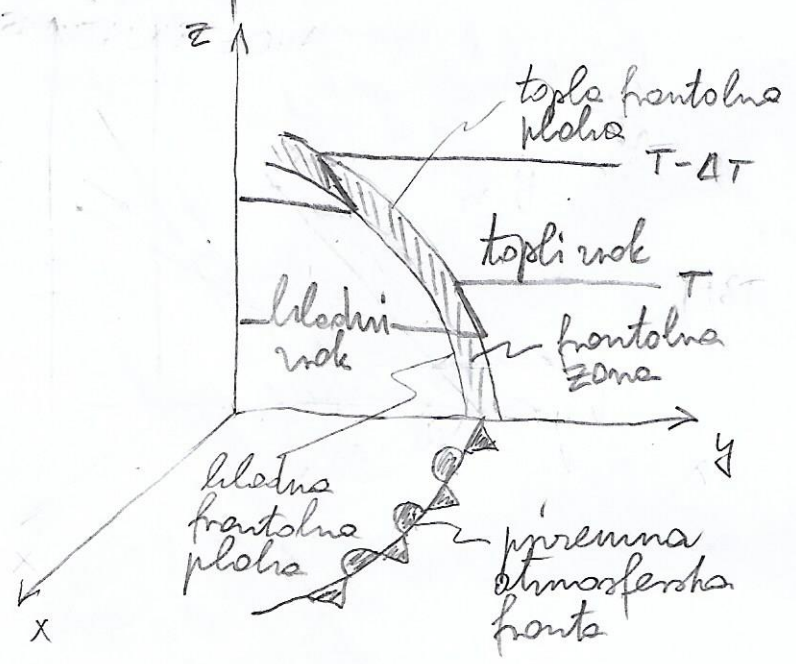 z
topla frontalna
ploha
T-ΔT
topli zrak
T
hladni
zrak
frontalna
zona
y
hladna
frontalna
ploha
prizemna
atmosferska
fronta
x